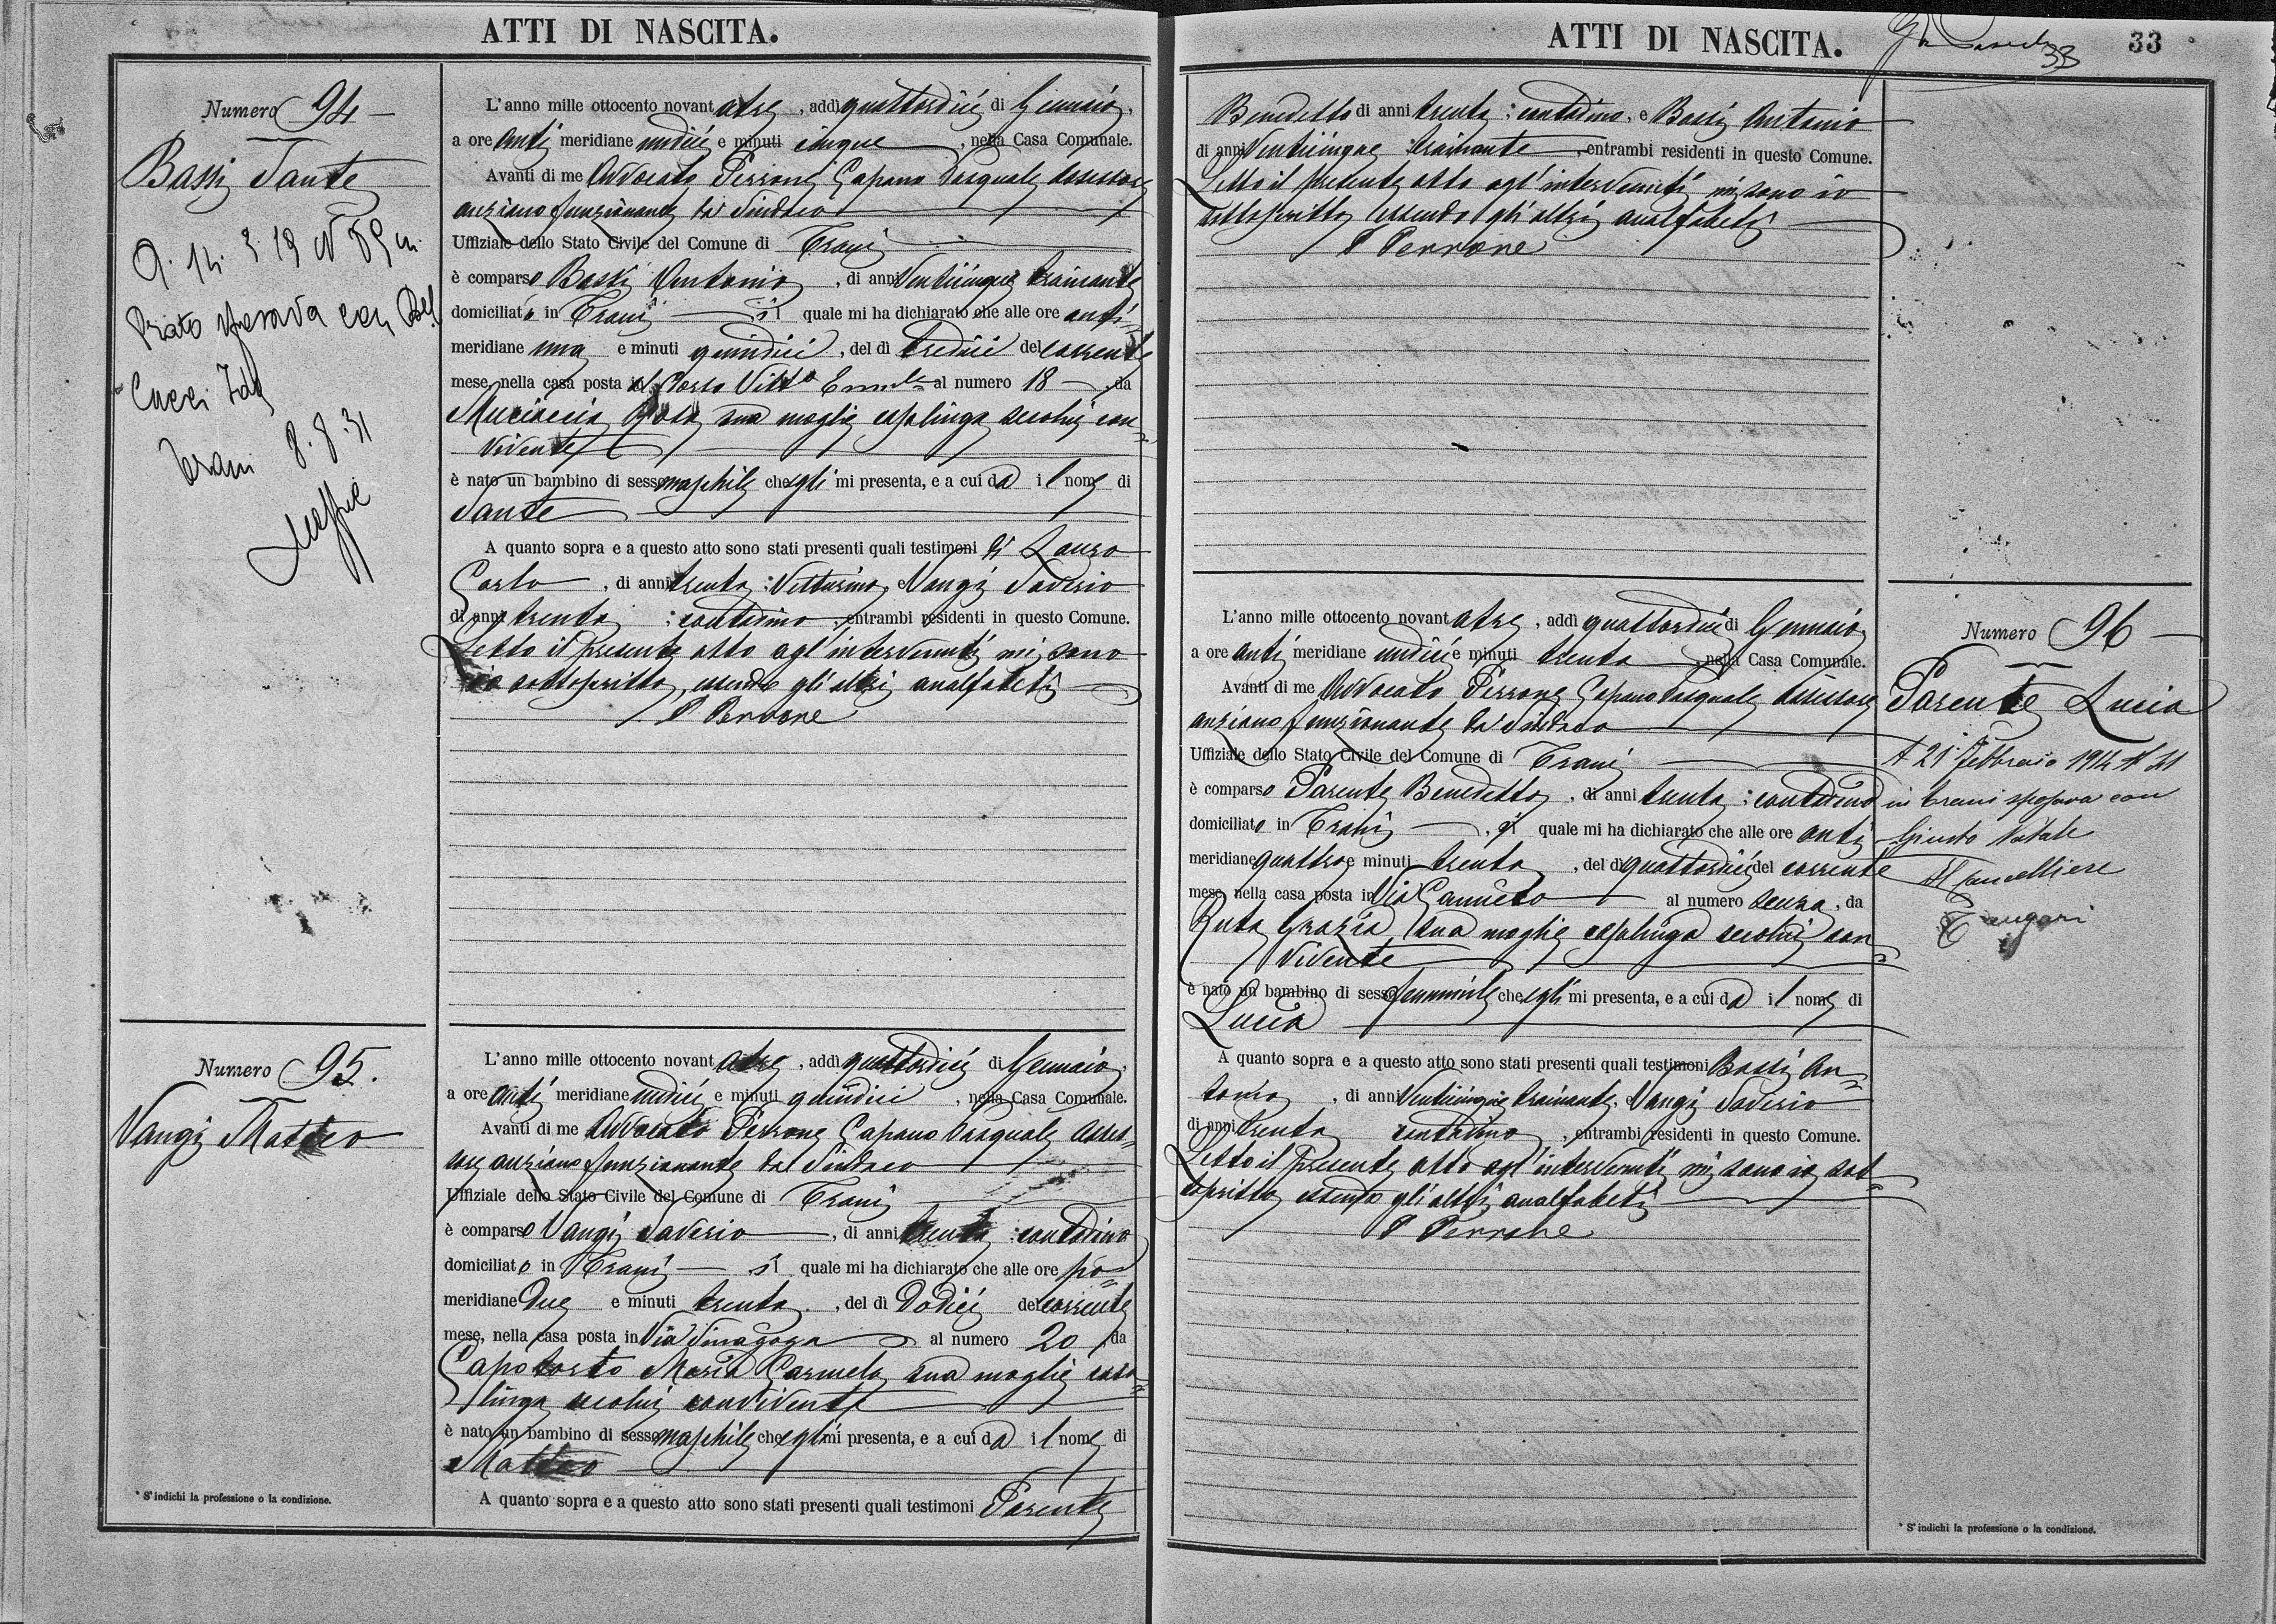 ATTI DI NASCITA.
Numero 94
Bassi Sante
sposava con
Cucci Ida
Trani 8.8.31
L'anno mille ottocento novantatre, addì quattordici di Gennaio,
a ore anti meridiane undici e minuti cinque, nella Casa Comunale.
Avanti di me Avvocato Perrone Capano Pasquale Assessore
anziano funzionante da Sindaco
Uffiziale dello Stato Civile del Comune di Trani
è comparso Bassi Antonio, di anni venticinque trainante
domiciliato in Trani il quale mi ha dichiarato che alle ore anti-
meridiane una e minuti quindici, del dì tredici del corrente
mese, nella casa posta al Corso Vitt° Emle al numero 18, da
Musciaccia Rosa sua moglie casalinga secolui con=
vivente
è nato un bambino di sesso maschile che egli mi presenta, e a cui dà il nome di
Sante
A quanto sopra e a questo atto sono stati presenti quali testimoni di Lauro
Carlo, di anni trenta: Vetturino, e Vangi Saverio
di anni trenta; contadino, entrambi residenti in questo Comune.
Letto il presente atto agl'intervenuti mi sono
io sottoscritto, essendo gli altri analfabeti
P Perrone
Numero 95.
Vangi Matteo
L'anno mille ottocento novantatre, addì quattordici di Gennaio,
a ore anti meridiane undici e minuti quindici, nella Casa Comunale.
Avanti di me Avvocato Perrone Capano Pasquale Asses=
sore anziano funzionante da Sindaco
Uffiziale dello Stato Civile del Comune di Trani
è comparso Vangi Saverio, di anni trenta: contadino
domiciliato in Trani il quale mi ha dichiarato che alle ore po=
meridiane due e minuti trenta, del dì dodici del corrente
mese, nella casa posta in Via Sinagoga al numero 20, da
Capotorto Maria Carmela sua moglie casa=
linga secolui convivente
è nato un bambino di sesso maschile che egli mi presenta, e a cui dà il nome di
Matteo
A quanto sopra e a questo atto sono stati presenti quali testimoni Parente
* S'indichi la professione o la condizione.
ATTI DI NASCITA.
33
33
Benedetto di anni trenta: contadino, e Bassi Antonio
di anni venticinque trainante, entrambi residenti in questo Comune.
Letto il presente atto agl'intervenuti mi sono io
sottoscritto essendo gli altri analfabeti
P Perrone
L'anno mille ottocento novantatre, addì quattordici di Gennaio,
a ore anti meridiane undici e minuti trenta, nella Casa Comunale.
Avanti di me Avvocato Perrone Capano Pasquale Assessore
anziano funzionante da Sindaco
Uffiziale dello Stato Civile del Comune di Trani
è comparso Parente Benedetto, di anni trenta; contadino
domiciliato in Trani, il quale mi ha dichiarato che alle ore anti
meridiane quattro e minuti trenta, del dì quattordici del corrente
mese, nella casa posta in Via Canneto al numero senza, da
Ruta Grazia sua moglie casalinga secolui con=
vivente
è nato un bambino di sesso femminile che egli mi presenta, e a cui dà il nome di
Lucia
A quanto sopra e a questo atto sono stati presenti quali testimoni Bassi An=
tonio, di anni venticinque trainante, e Vangi Saverio
di anni trenta contadino, entrambi residenti in questo Comune.
Letto il presente atto agl'intervenuti mi sono io sot=
toscritto essendo gli altri analfabeti
P Perrone
Numero 96
Parente Lucia
A 21 Febbraio 1914 N 31
in Trani sposava con
Giusto Natale
Il Cancelliere
* S'indichi la professione o la condizione.